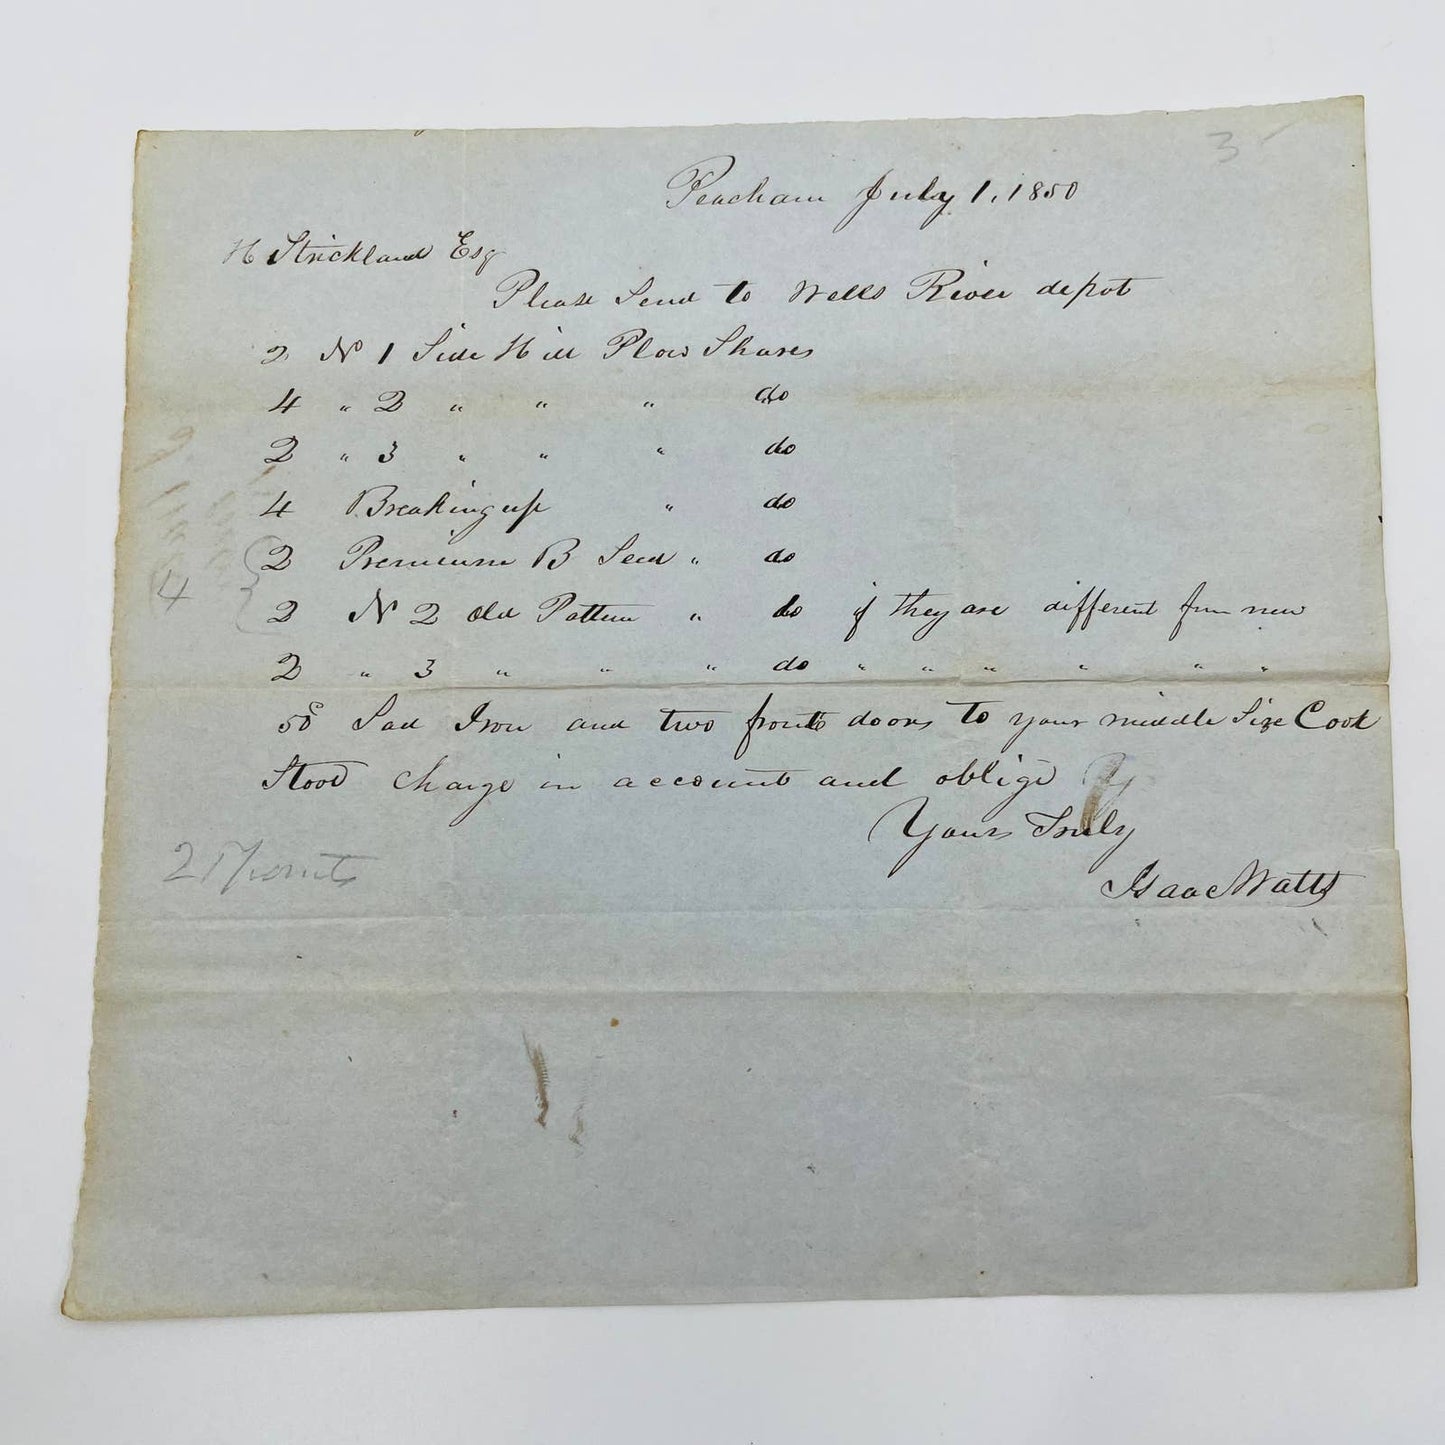 3
Peacham July 1, 1850
H Strickland Esq
Please Send to Wells River depot
2 No 1 Side Hill Plow Shares
4 " 2 " " " do
2 " 3 " " " do
4 Breaking up " do
2 Premium B Seed " do
4
2 No 2 Old Pattern " do if they are different from new
2 " 3 " " " do " " " " " "
50 Sad Iron and two front doors to your middle Size Cook
Stove Charge in account and oblige Y
Yours Truly
Isaac Watts
2